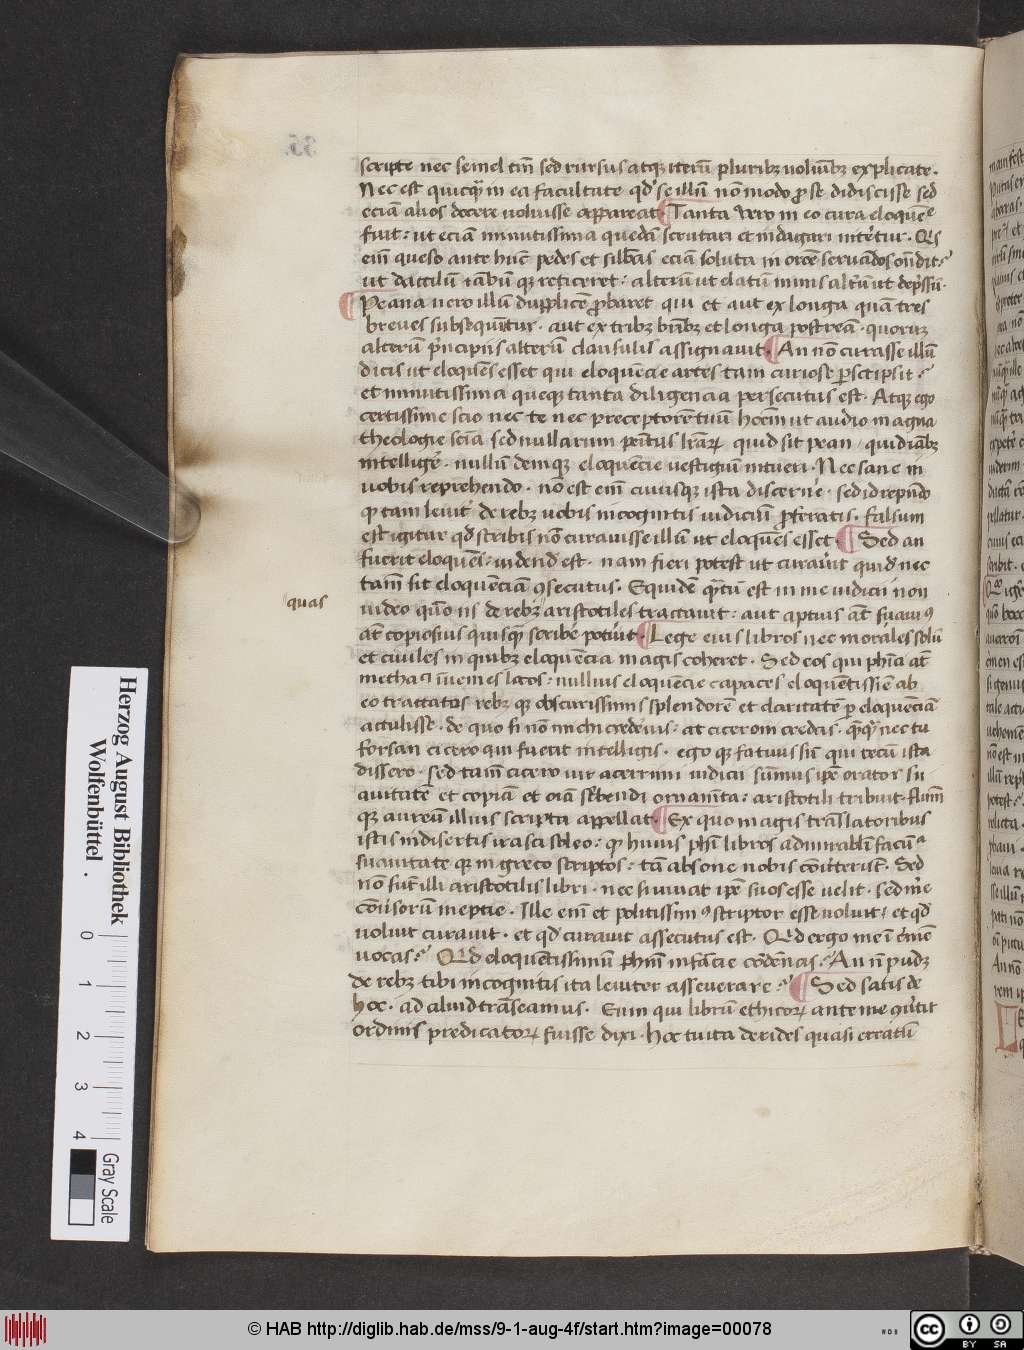 scripte nec semel tm̄ sed rursus atq; iterū pluribꝫ uolūībꝫ explicate.
Nec est quicq̄ in ea facultate qd' se illū nō modo p̱ se didicisse sed
eciā alios docere uoluisse appareat. Tanta vero in eo cura eloquē͛
fuit: ut eciā minutissima quedā scrutari et indagari niteretur. Qis
em̄ queso ante hūc pedes et sillabas eciā soluta in oroē seruādos oñdit:
ut dactilū iābū qꝫ reficeret: alterū ut elatū nimis alt'ū ut dep̄ssū.
Peana uero illū dupplicē p̱baret qui et aut ex longa quā tres
breues subsequūtur. aut ex tribꝫ breūibꝫ et longa postrea. quorūꝫ
alterū p̄ncipiis alterū clausulis assignauit. An nō curasse illū
dicis ut eloquēs esset qui eloquēcie artes tam curiose p̱scripsit:
et minutissima queqꝫ tanta diligencia persecutus est. Atqꝫ ego
certissime scio nec te nec preceptorē tuū hoēm ut audio in magna
theologie sciā sed nullarum penitus lr̄arꝝ quid sit pean, quid iābꝫ
intelligē. nullū deniqꝫ eloquēcie uestigiū intueri. Nec sane in
uobis reprehendo. nō est em̄ cuiusqꝫ ista discernē. sed id rep̄ndo
qꝫ tam leuit' de rebꝫ uobis incognitis iudiciū p̱feratis. falsum
est igitur qd' scribis nō curauisse illū ut eloquēs esset. Sed an
fuerit eloquēs: uidend' est. nam fieri potest ut curauit quid' nec
tam̄ sit eloquēciam ꝯsecutus. Equidē q̄tū est in me iudicii non
quas
uideo quō iis de rebꝫ aristotiles tractauit: aut aptius aut̄ suauiꝰ
at̄ copiosius quisq̄ scribē potuit. Lege eius libros nec morales solū
et ciuiles in quibꝫ eloquēcia magis coheret. Sed eos qui phīa at̄
methaᵃ uem es lacos: nullius eloquēcie capaces eloquētissime ab
eo tractatos rebꝫ qꝫ obscurissimis splendorē et claritatē p̱ eloquēciā
actulisse. de quo si nō michi credemus: at ciceroni credas. q̄q̄ nec tu
forsan cicero qui fuerit intelligis. ego qꝫ fatuus sū qui tecū ista
dissero. sed tam̄ cicero uir acerrimi iudicii sūmus ip̄e orator su
auitatē et copiā et oīa scribendi ornam̄ta: aristotili tribuit. flum̄
qꝫ aureū illius scripta appellat. Ex quo magis trāslatoribus
istis indisertis irasci soleo: qꝫ huius phī libros admirabili facūᵃ
suauitate qꝫ in greco scriptos: tā absone nobis cōuerterūt. Sed
nō sut̄ illi aristotilis libri. nec si uiuat ip̄e suos esse uelit. sed m̄e
conuersorū ineptie. Ille em̄ et politissimꝰ scriptor esse uoluit, et qd'
uoluit curauit. et qd' curauit assecutus est. Qd ergo me ī crīmē
uocas: Qd eloquētissimū phūm infācie cōdēnas: An nō pudꝫ
de rebꝫ tibi incognitis ita leuiter asseuerare: Sed satis de
hoc. ad aliud trāseamus. Eum qui librū ethicorꝝ ante me q̄'tit
ordinis predicatorꝝ fuisse dixi. hoc tu ita derides quasi erratū
35.
Herzog August Bibliothek
Wolfenbüttel
0
1
2
3
4
Gray Scale
© HAB http://diglib.hab.de/mss/9-1-aug-4f/start.htm?image=00078
WDB
cc
BY SA